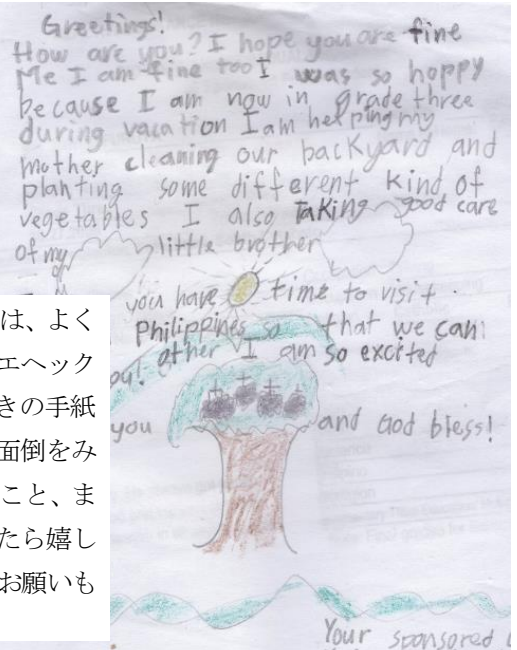 Greetings!
How are you? I hope you are fine
Me I am fine too I was so happy
because I am now in grade three
during vacation I am helping my
mother cleaning our backyard and
planting some different kind of
vegetables I also Taking good care
of my little brother
you have time to visit
Philippines so that we can
other I am so excited
you!
you and God bless!
Your sponsored
は、よく
エヘック
きの手紙
面倒をみ
こと、ま
たら嬉し
お願いも